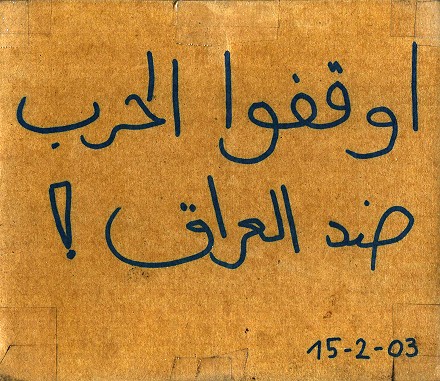 اوقفوا الحرب
ضد العراق !
15-2-03